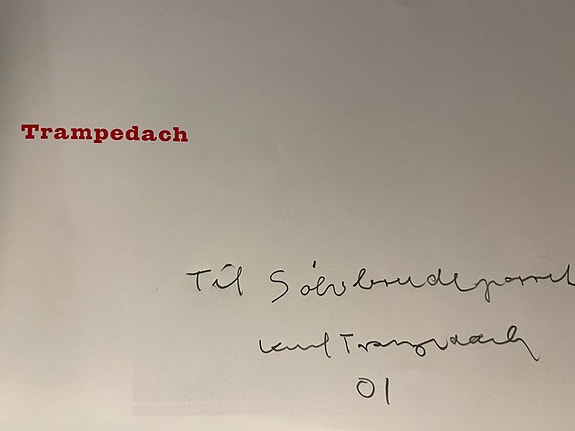 Trampedach
Til Sølvbrudeparret
Kurt Trampedach
01